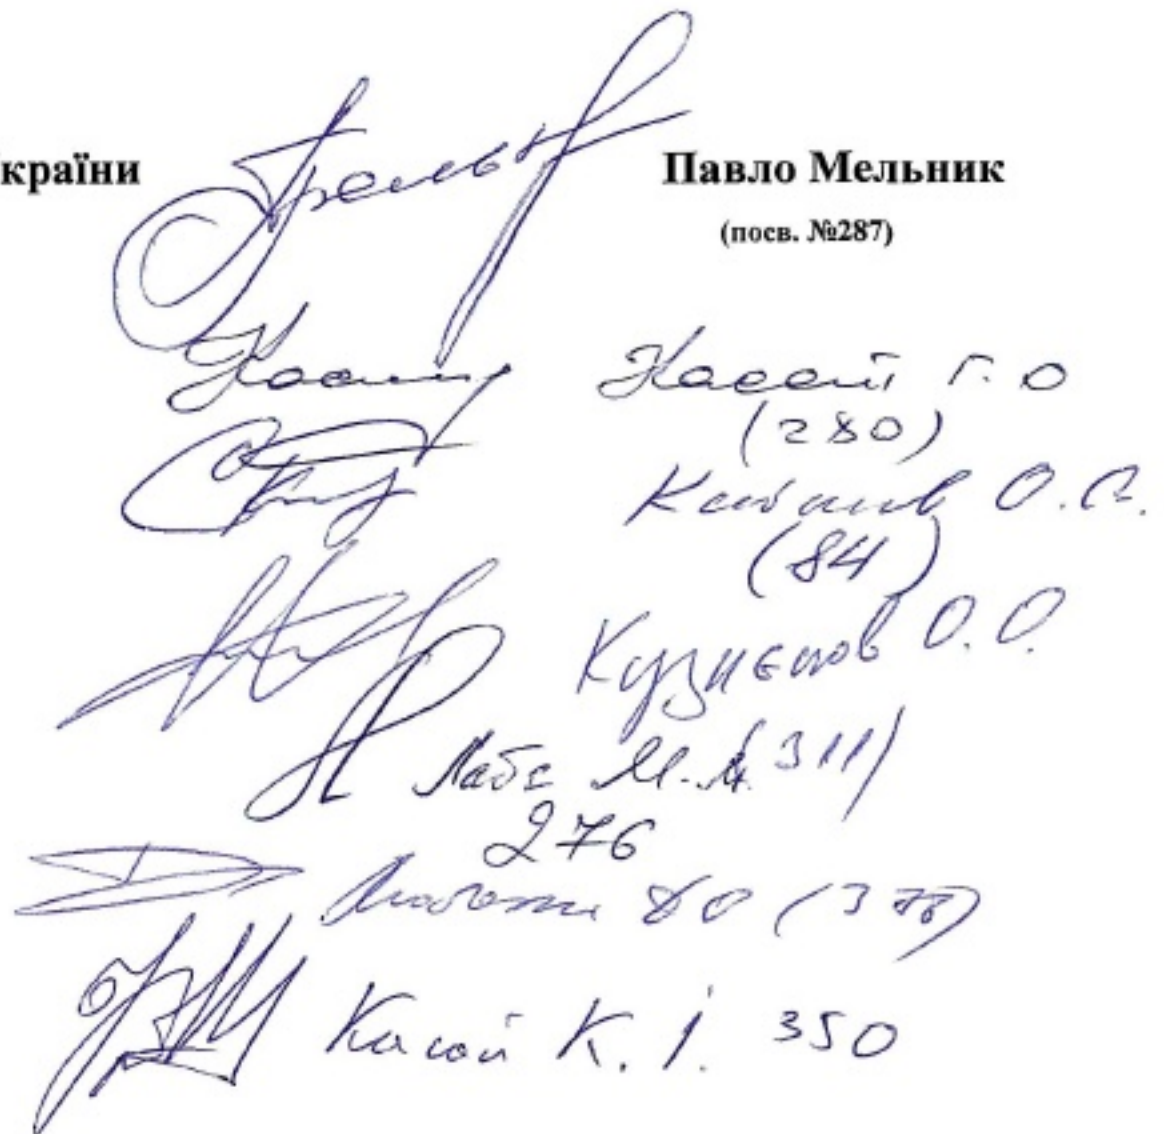 країни Павло Мельник
(посв. №287)
Касай Г. О
(280)
О. С.
(84)
Кузнєцов О. О.
311)
Лаба М. М.
276
(378)
Касай К. І. 350